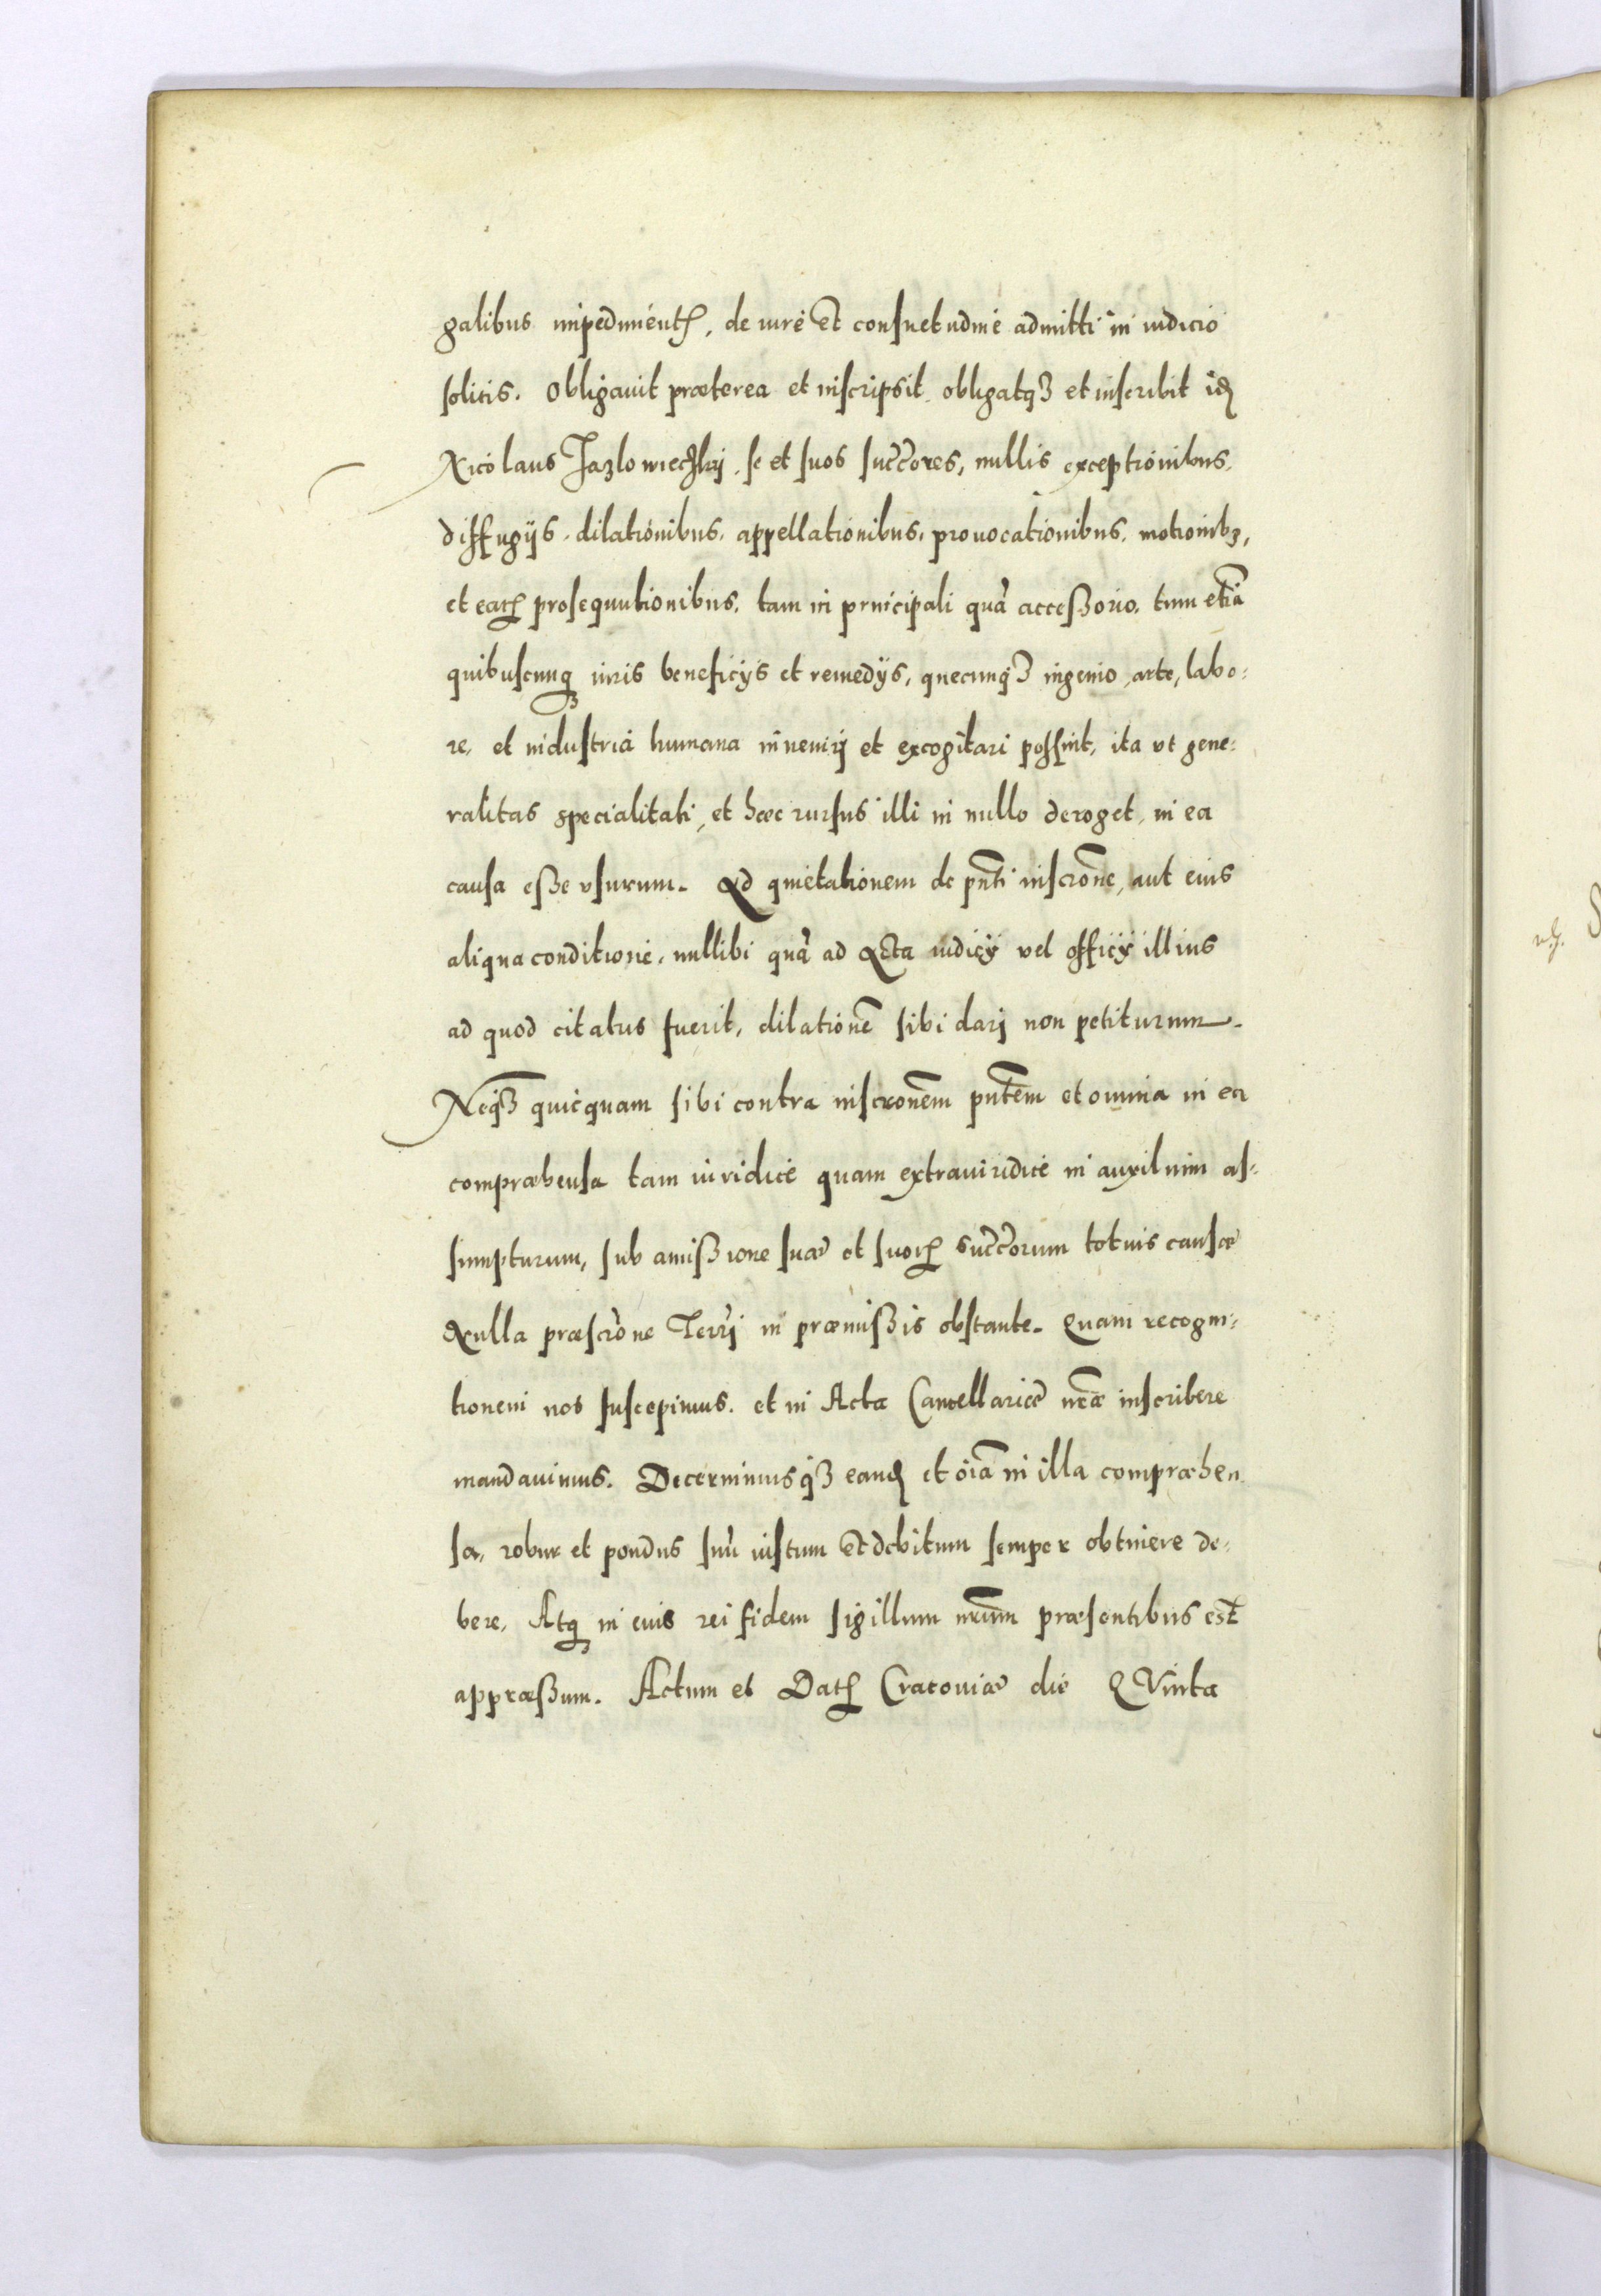 galibus impedimentꝭ, de iure et consuetudine admitti in iudicio
solitis. Obligauit præterea et inscripsit obligatqꝫ et inscribit idꝫ
Nicolaus Jazlowieczkij se et suos succ̃ores, nullis exceptionibus,
diffugijs, dilationibus, appellationibus, prouocationibus, motionibꝫ,
et eaꝝ prosequutionibus, tam in principali quã accessorio, tum etiã
quibuscunqꝫ iuris beneficijs et remedijs, quecunqꝫ ingenio, arte, labo-
re, et industria humana inuenirj et excogitari possint, ita vt gene-
ralitas specialitati, et hæc rursus illi in nullo deroget, in ea
causa esse vsurum. Ad quietationem de pñti inscrõne, aut eius
aliqua conditione, nullibi quã ad Acta iudicij vel officij illius
ad quod citatus fuerit, dilationẽ sibi darj non petiturum.
Neqꝫ quicquam sibi contra inscrõnem pñtem et omnia in ea
compræhensa tam iuridice quam extraiuridice in auxilium as-
sumpturum, sub amissione suæ et suoꝝ succ̃orum totius causæ
Nulla præscrõne Terrj in præmissis obstante. Quam recogni-
tionem nos suscepimus, et in Acta Cancellariæ nr̃æ inscribere
mandauimus. Decernimusqꝫ eandꝫ et oĩa in illa compræhen
sa, robur et pondus suũ iustum et debitum semper obtinere de-
bere. Atqꝫ in eius rei fidem sigillum nr̃um præsentibus est
appræssum. Actum et Datꝭ Cracouiæ die QVinta